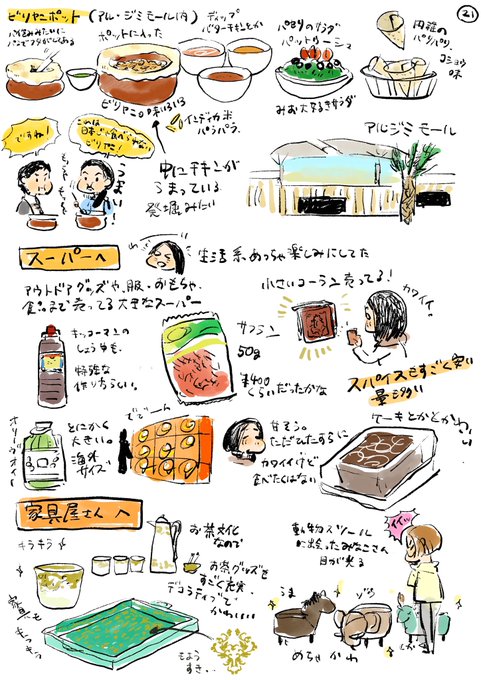 ㉑
ビリヤニポット (アル・ジミモール内)
パイ包みみたいに
パンでフタがしてある
ポットに入った
ディップ
バターチキンとか
パセリのサラダ
みお大好きサラダ
円錐の
パリパリ、
コショウ
味
ビリヤニの味いろいろ
インディカ米
パラパラ、
ですね!
このは
日本じゃ食べられない
ビリヤニ!
うまい
中にチキンが
うまっている
発掘みたい
アルジミモール
スーパーへ
生活系、めっちゃ楽しみにしてた
アウトドアグッズや、服・おもちゃ、
食品まで売ってる大きなスーパー
小さいコーラン売ってる!
カワイイ。
キッコーマンの
しょうゆも、
特殊な
作りらしい。
サフラン
50g
¥400
くらいだったかな
スパイスもすごく安い
量も多い
オリーブオイル
とにかく
大きい。
海外
サイズ
ででーん
甘そう。
ただひたすらに
カワイイけど
食べたくはない
ケーキとかどかわいい
家具屋さんへ
キラキラ
お茶文化
なので
お茶グッズも
すごく充実
デコラティブで
かわいい
家具も
もよう
すき…
動物スツール
に出会ったみなこさん
目が光る
うま
ゾウ
しか
めちゃかわ